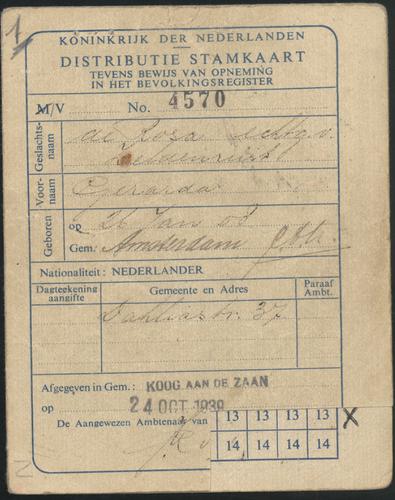 1
KONINKRIJK DER NEDERLANDEN
DISTRIBUTIE STAMKAART
TEVENS BEWIJS VAN OPNEMING
IN HET BEVOLKINGSREGISTER
M/V No. 4570
Geslachts-
naam
de Roza echtg. v.
Voor-
naam
Gerarda
Geboren
op 26 Jan 08
Gem. Amsterdam
Nationaliteit: NEDERLANDER
Dagteekening
aangifte
Gemeente en Adres
Paraaf
Ambt.
Dahliastr. 37
Afgegeven in Gem.: KOOG AAN DE ZAAN
op 24 OCT 1939
De Aangewezen Ambtenaar van
13 13 13 13 X
14 14 14 14